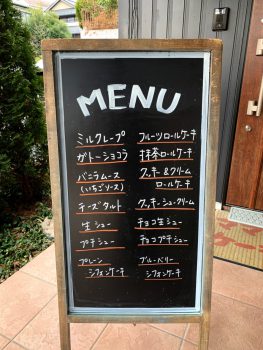 MENU
ミルクレープ
ガトーショコラ
バニラムース
(いちごソース)
チーズタルト
生シュー
プチシュー
プレーン
シフォンケーキ
フルーツロールケーキ
抹茶ロールケーキ
クッキー&クリーム
ロールケーキ
クッキーシュークリーム
チョコ生シュー
チョコプチシュー
ブルーベリー
シフォンケーキ